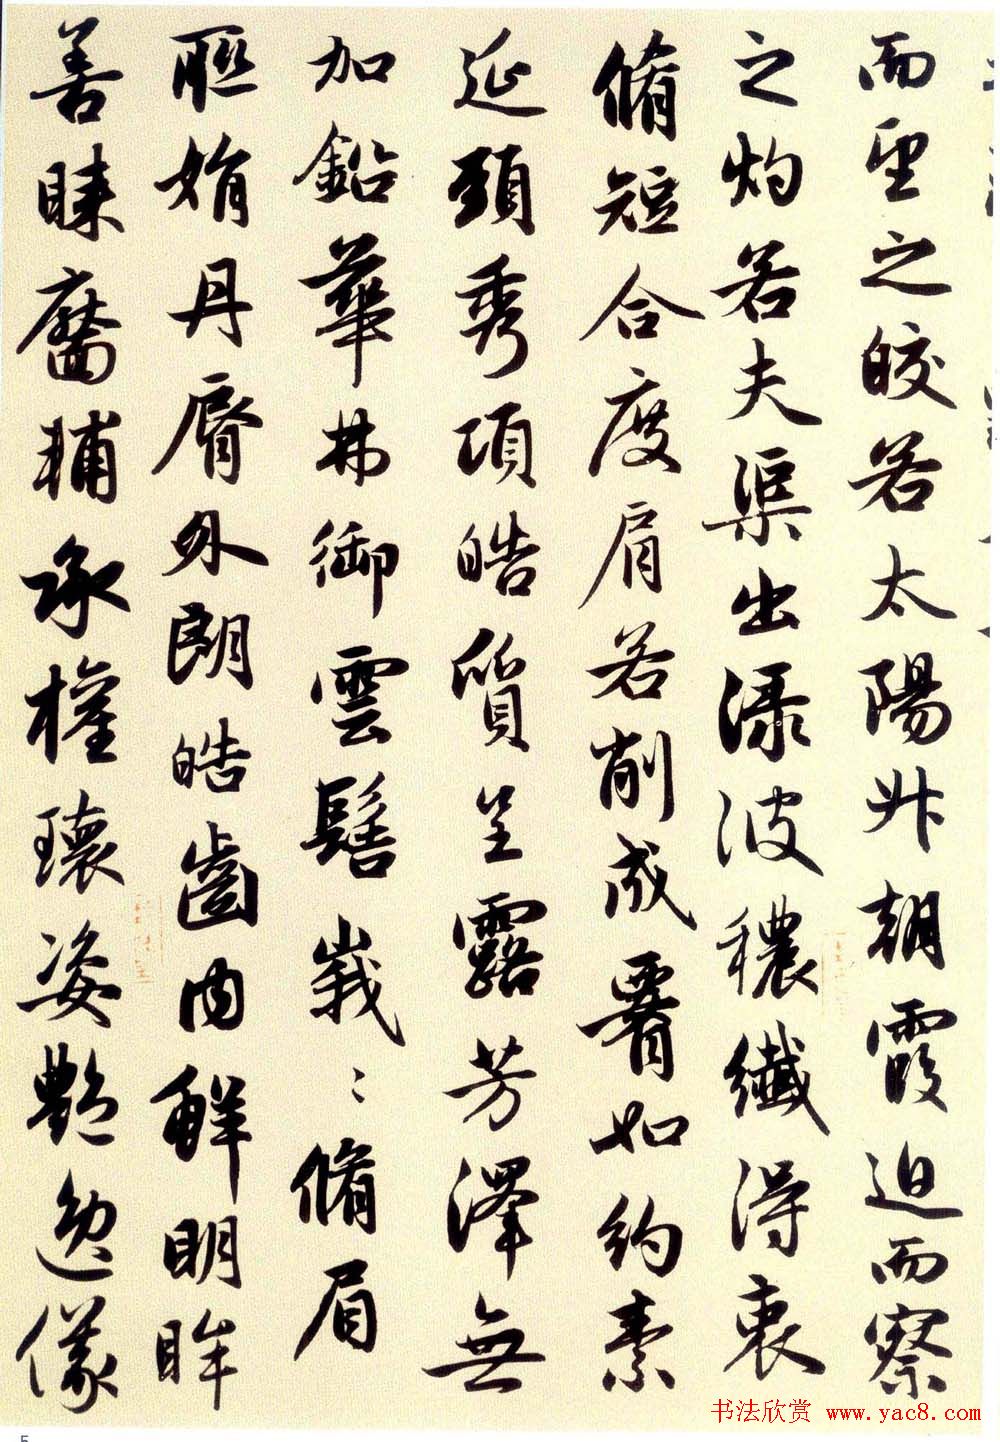 而望之皎若太陽升朝霞迫而察
之灼若夫渠出淥波穠纖得衷
脩短合度肩若削成署如約素
延頸秀項皓質呈露芳澤無
加鉛華弗御雲髻峩〻脩眉
聯娟丹脣外朗皓齒内鮮明眸
善睞靨輔承權瓌姿艷逸儀
书法欣赏 www.yac8.com
5